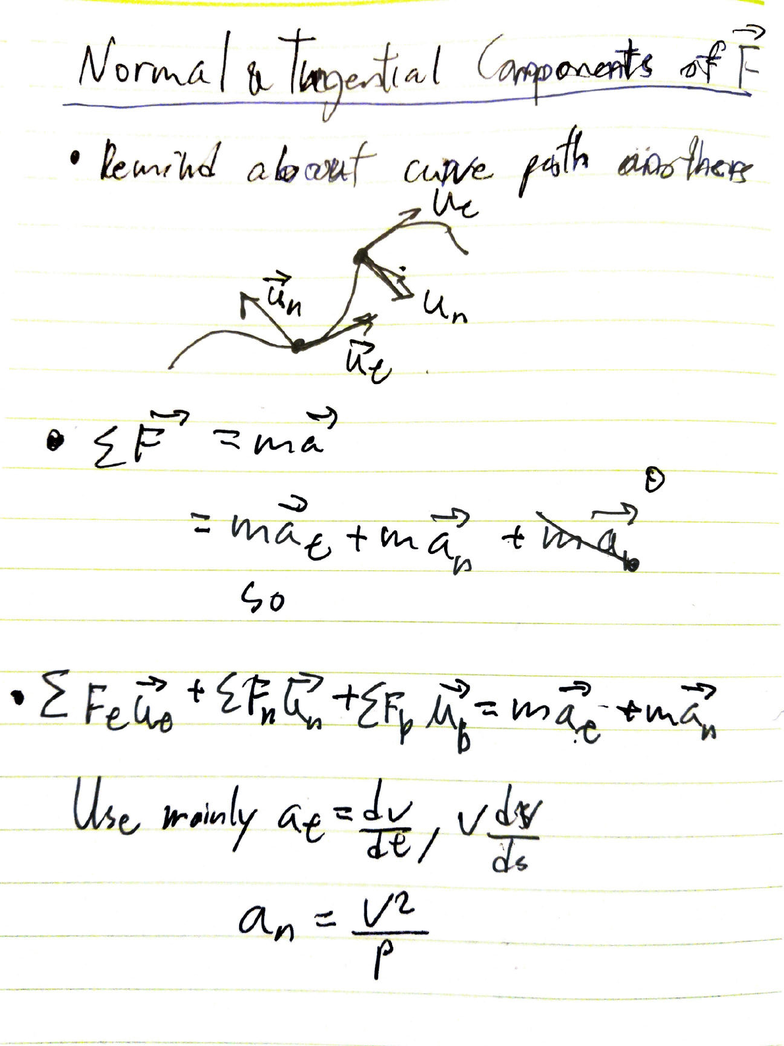 Normal & Tangential Components of F⃗
• Remind about curve path
u_t
u⃗_n
u_n
u⃗_t
• ΣF⃗ = ma⃗
0
= ma⃗_t + ma⃗_n + ma⃗_b
so
• ΣF_t u⃗_t + ΣF_n u⃗_n + ΣF_b u⃗_b = ma⃗_t + ma⃗_n
Use mainly a_t = dv/dt, v dv/ds
a_n = v²/ρ